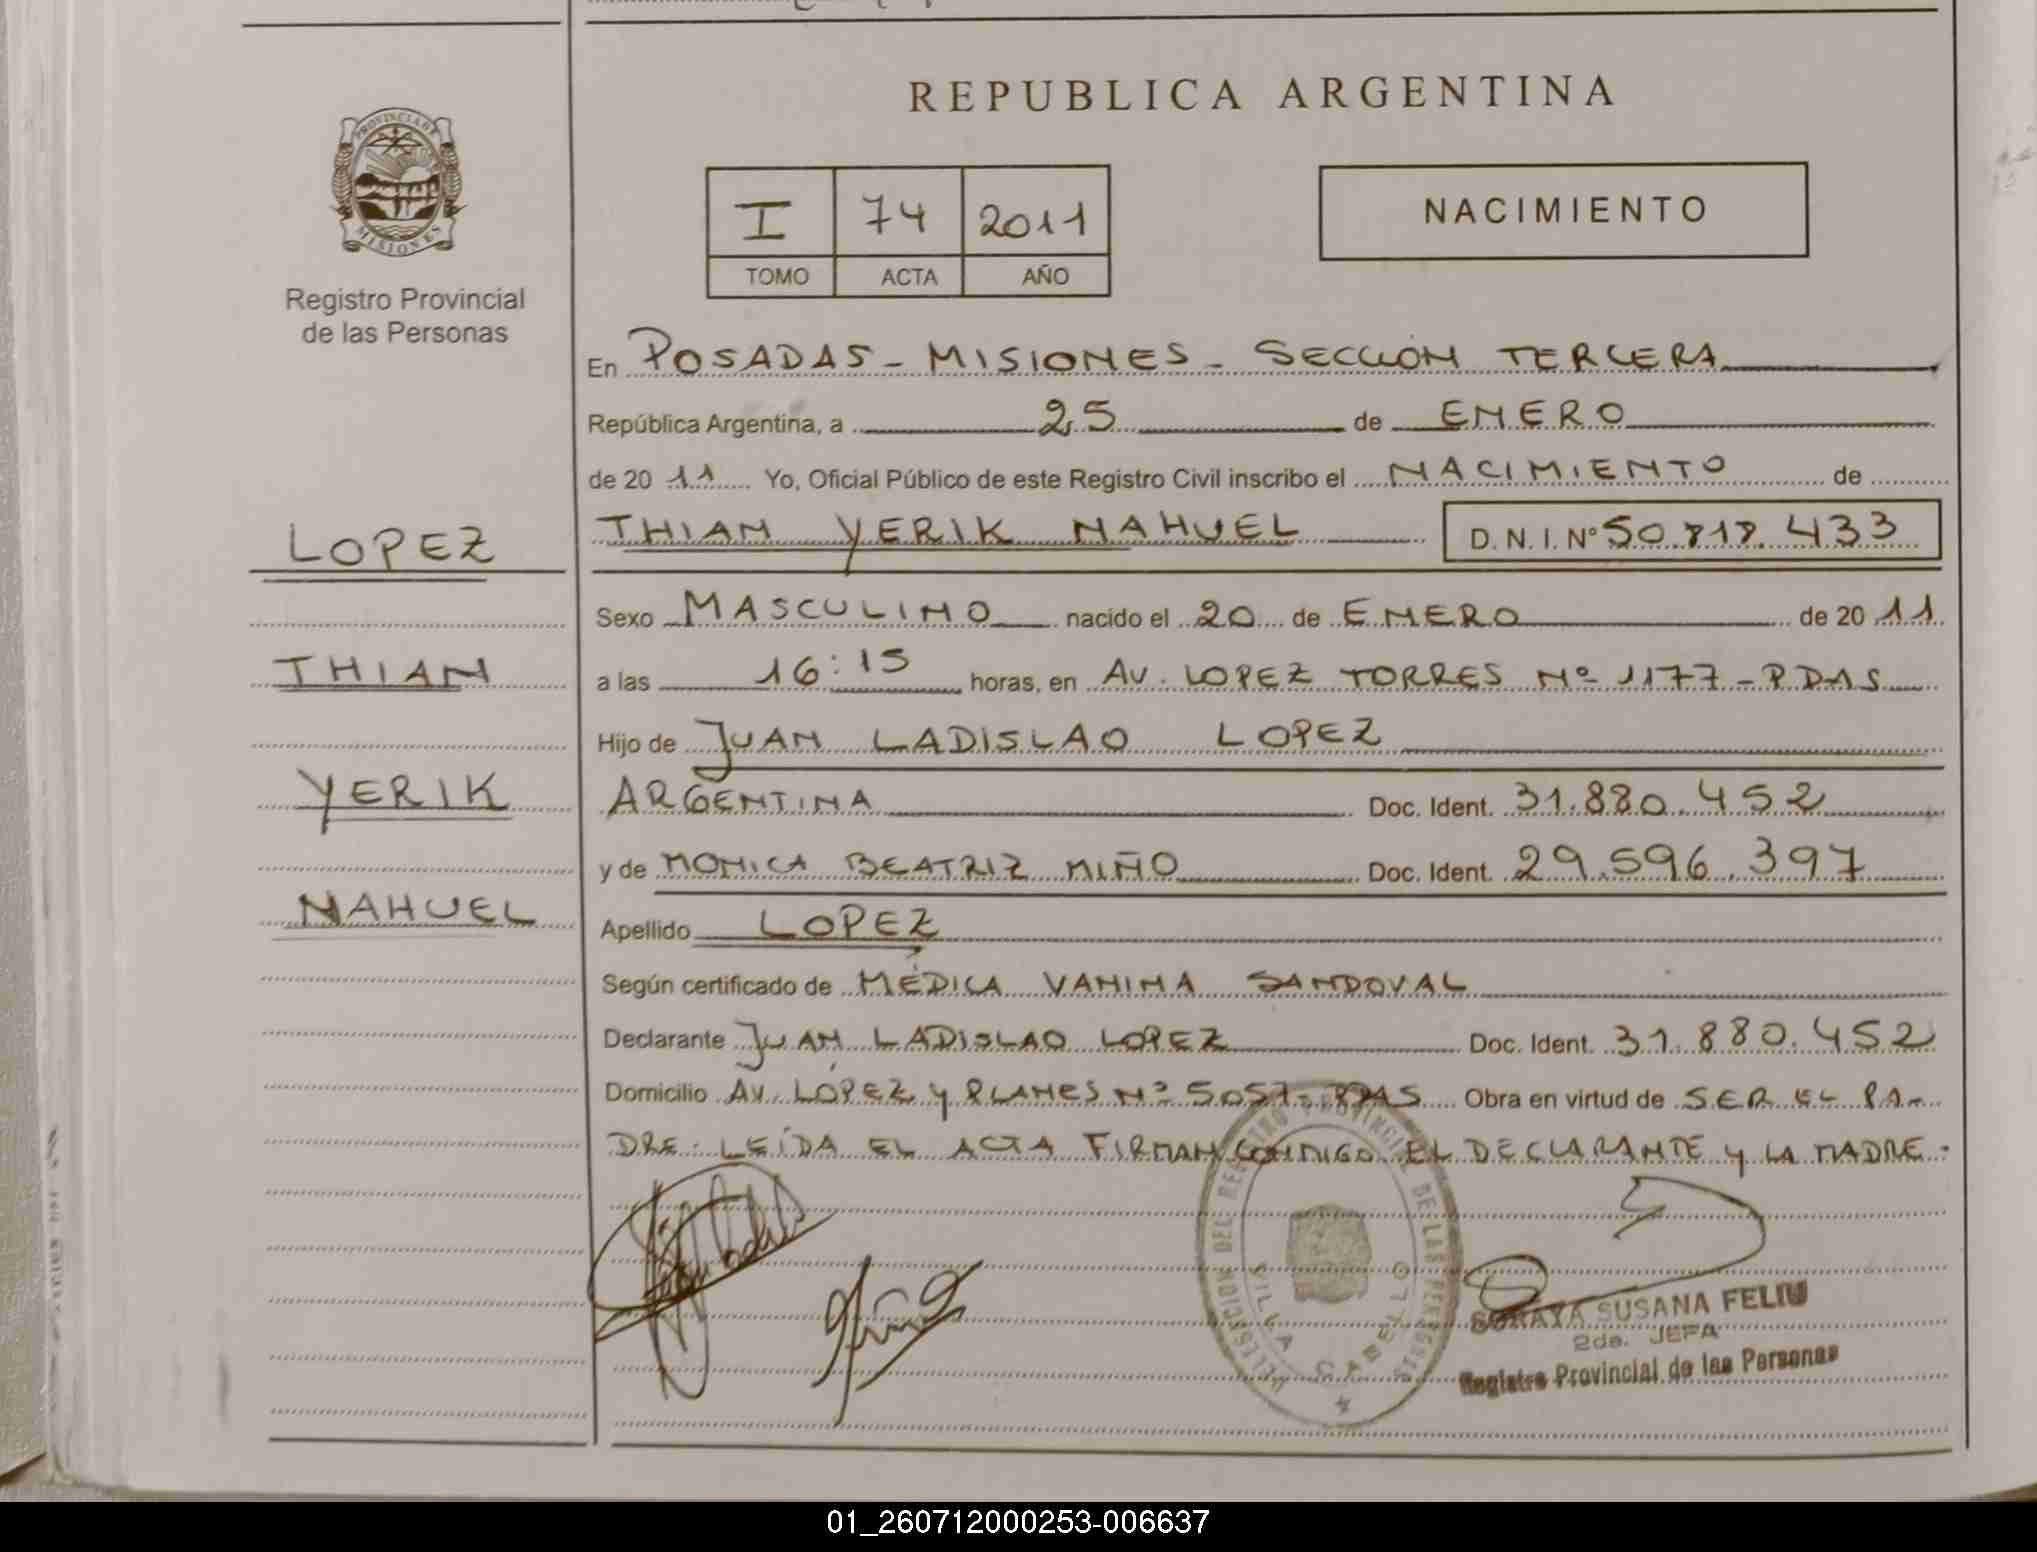 REPUBLICA ARGENTINA
PROVINCIA DE
MISIONES
Registro Provincial
de las Personas
I 74 2011
TOMO ACTA AÑO
NACIMIENTO
En POSADAS - MISIONES - SECCIÓN TERCERA
República Argentina, a 25 de ENERO
de 20 11 Yo, Oficial Público de este Registro Civil inscribo el NACIMIENTO de
THIAN YERIK NAHUEL D.N.I. Nº 50.818.433
LOPEZ
THIAN
YERIK
NAHUEL
Sexo MASCULINO nacido el 20 de ENERO de 20 11
a las 16:15 horas, en AV. LOPEZ TORRES Nº 1177 - PDAS
Hijo de JUAN LADISLAO LOPEZ
ARGENTINA Doc. Ident. 31.880.452
y de MONICA BEATRIZ MIÑO Doc. Ident. 29.596.397
Apellido LOPEZ
Según certificado de MÉDICA VANINA SANDOVAL
Declarante JUAN LADISLAO LOPEZ Doc. Ident. 31.880.452
Domicilio AV. LÓPEZ Y PLANES Nº 5057 - PDAS Obra en virtud de SER EL PA-
DRE. LEÍDA EL ACTA FIRMAN CONMIGO EL DECLARANTE Y LA MADRE.
DELEGACION DEL REGISTRO PROVINCIAL DE LAS PERSONAS
VILLA CABELLO
SORAYA SUSANA FELIU
2da. JEFA
Registro Provincial de las Personas
01_260712000253-006637